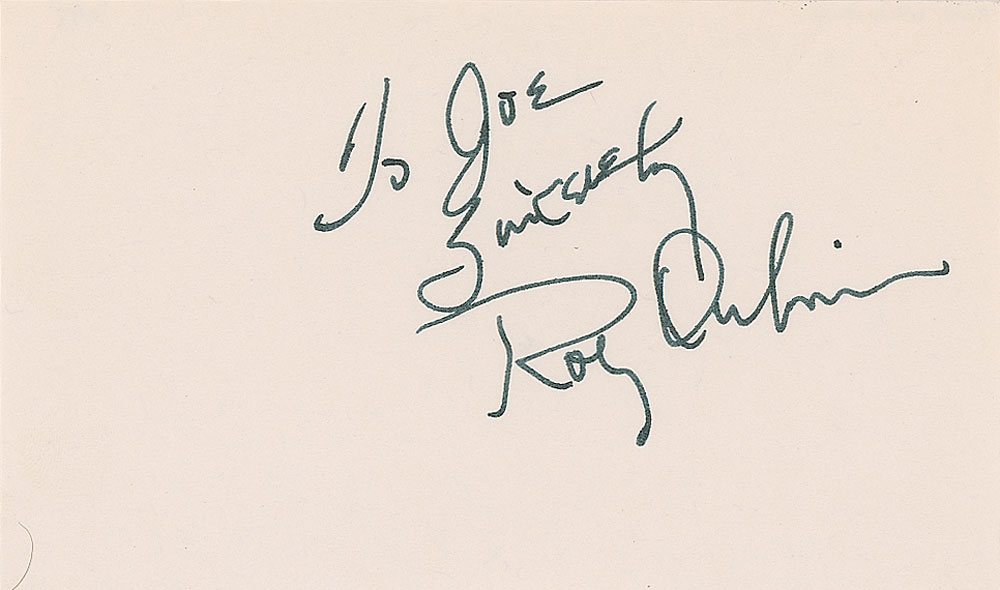 To Joe
Sincerely
Roy Rubin